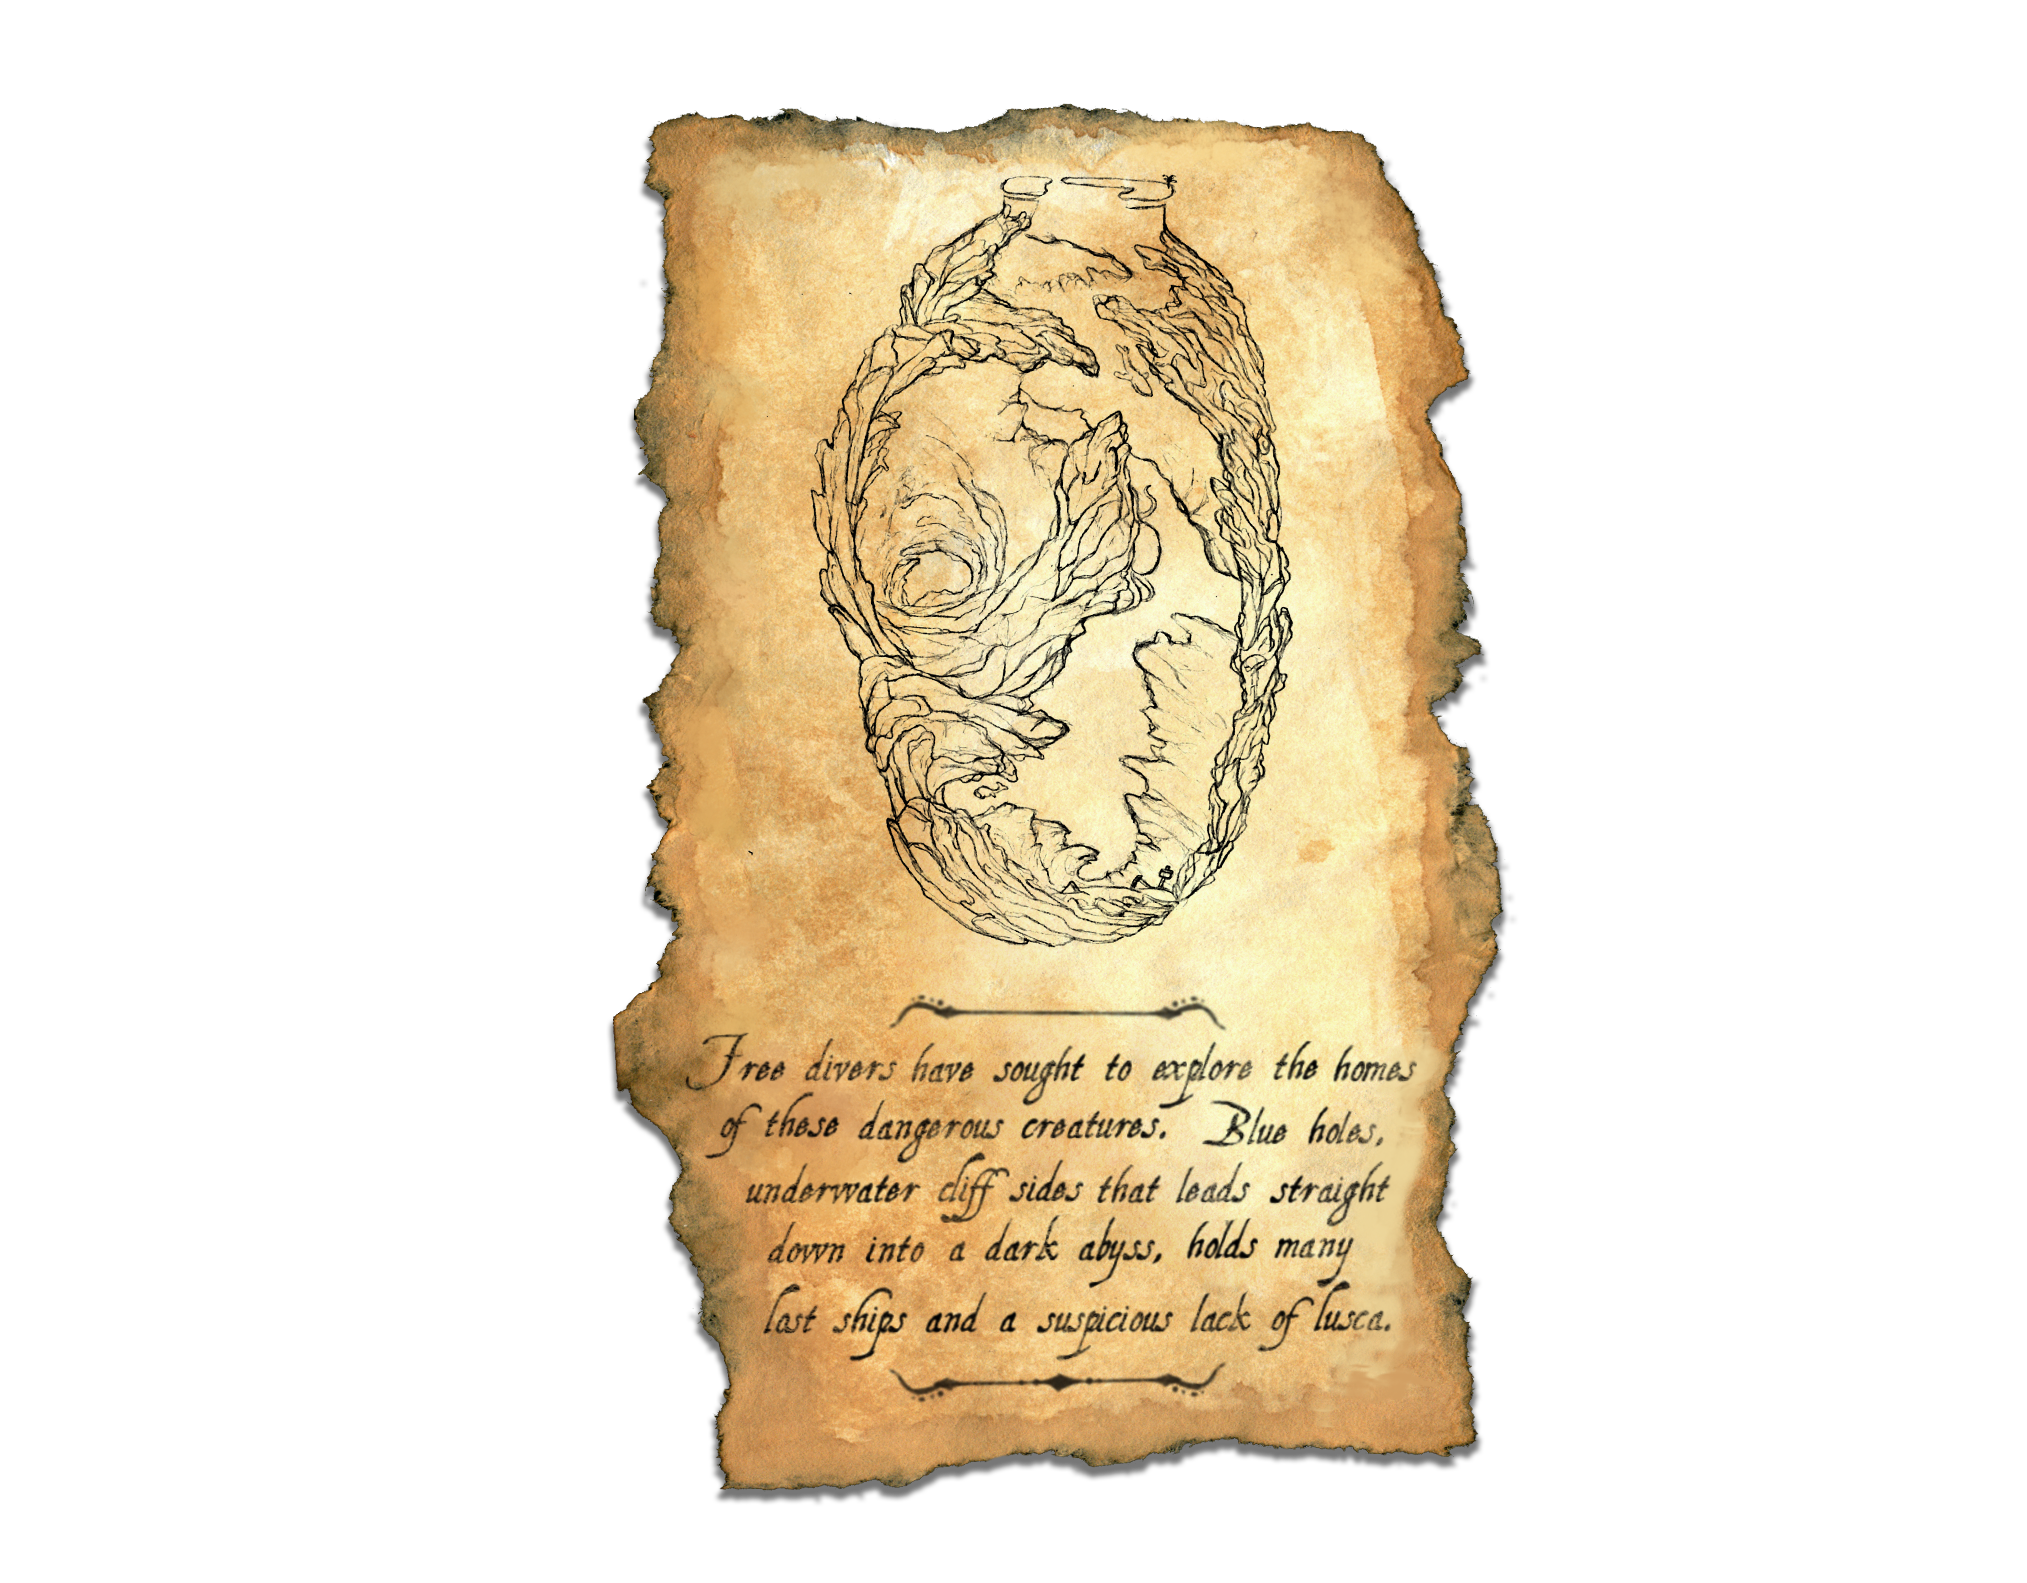 Free divers have sought to explore the homes
of these dangerous creatures. Blue holes,
underwater cliff sides that leads straight
down into a dark abyss, holds many
lost ships and a suspicious lack of lusca.